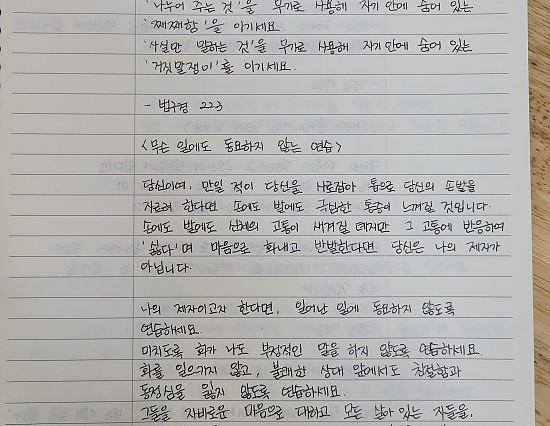 '나누어 주는 것'을 무기로 사용해 자기 안에 숨어 있는
'째째함'을 이기세요.
'사실만 말하는 것'을 무기로 사용해 자기 안에 숨어 있는
'거짓말쟁이'를 이기세요.
- 법구경 223
<무슨 일에도 동요하지 않는 연습>
당신이여, 만일 적이 당신을 사로잡아 톱으로 당신의 손발을
자르려 한다면 손에도 발에도 극심한 통증이 느껴질 것입니다.
손에도 발에도 신체의 고통이 새겨질 테지만 그 고통에 반응하여
'싫다'며 마음으로 화내고 반발한다면 당신은 나의 제자가
아닙니다.
나의 제자이고자 한다면, 일어난 일에 동요하지 않도록
연습하세요.
미치도록 화가 나도 부정적인 말을 하지 않도록 연습하세요.
화를 일으키지 않고, 불쾌한 상대 앞에서도 친절함과
동정심을 잃지 않도록 연습하세요.
그들을 자비로운 마음으로 대하고 모든 살아 있는 자들을,